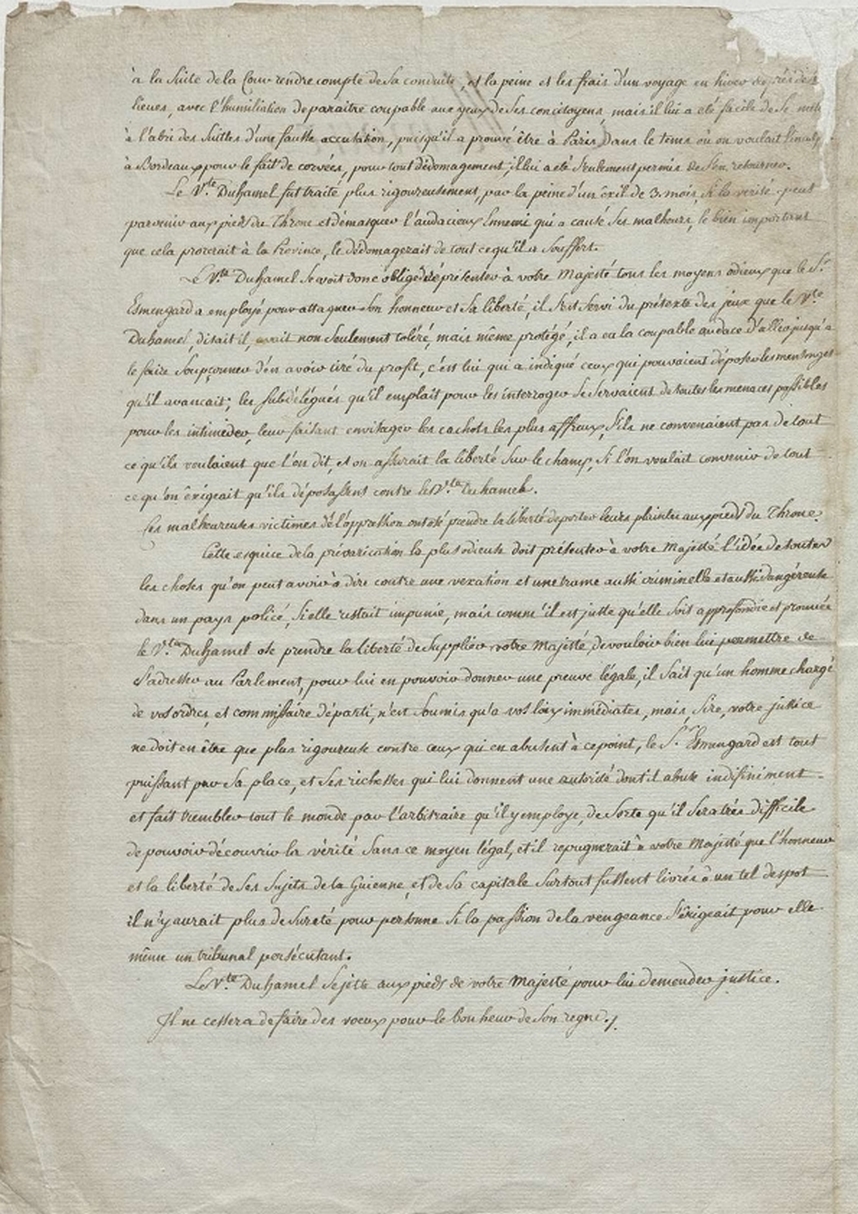 à la Suite de la Cour rendre compte de Sa conduite, et la peine et les frais d'un voyage en hiver de près de
lieues, avec l'humiliation de paraitre coupable aux yeux de Ses concitoyens, mais il lui a eté facile de Se mettre
à l'abri des Suittes d'une fausse accusation, puisqu'il a prouvé être à Paris, dans le tems où on voulait
à Bordeaux pour le fait de corvées, pour tout dédomagement, il lui a eté Seulement permis de S'en retourner.
Le V.te Duhamel fut traité plus rigoureusement, par la peine d'un éxil de 3. mois, Si la verité peut
parvenir aux pieds du Throne et démasquer l'audacieux Ennemi qui a causé Ses malheurs, le bien important
que cela procurait à la Province, le dédomagerait de tout ce qu'il a Souffert.
Le V.te Duhamel Se voit donc obligé de représenter à votre Majesté tous les moyens odieux que le S.r
Esmangard a employé pour attaquer Son honneur et Sa liberté, il S'est Servi du prétexte des jeux que le V.te
Duhamel, disait il, avait non Seulement toléré, mais même protégé, il a eu la coupable audace d'aller jusqu'à
le faire Soupçonner d'en avoir tiré du profit, c'est lui qui a indiqué ceux qui pouvaient déposer les mensonges
qu'il avancait; les Subdélégués qu'il emplait pour les interroger Se Servaient de toutes les menaces possibles
pour les intimider, leur faisant envisager les cachots les plus affreux, S'ils ne convenaient pas de tout
ce qu'ils voulaient que l'on dit, et on assurait la liberté Sur le champ, Si l'on voulait convenir de tout
ce qu'on éxigeait qu'ils déposassent contre le V.te Duhamel.
Ces malheureuses victimes de l'oppression ont osé prendre la liberté de porter leurs plaintes aux pieds du Throne.
Cette espece de la prévarication la plus odieuse doit présenter à votre Majesté l'idée de toutes
les choses qu'on peut avoir à dire contre une vexation et une trame aussi criminelle et aussi dangéreuse
dans un pays policé, Si elle restait impunie, mais comme il est juste qu'elle Soit approfondie et prouvée
le V.te Duhamel ose prendre la liberté de Supplier votre Majesté, de vouloir bien lui permettre de
S'adresser au Parlement, pour lui en pouvoir donner une preuve légale, il Sait qu'un homme chargé
de vos ordres, et commissaire départi, n'est Soumis qu'a vos loix immédiates, mais, Sire, votre justice
ne doit en être que plus rigoureuse contre ceux qui en abusent à ce point, le S.r Esmangard est tout
puissant par Sa place, et Ses richesses qui lui donnent une autorité dont il abuse indéfiniment
et fait trembler tout le monde par l'arbitraire qu'il y employe, de Sorte qu'il Sera très difficile
de pouvoir découvrir la vérité Sans ce moyen légal, et il repugnerait à votre Majesté que l'honneur
et la liberté de Ses Sujets de la Guienne, et de Sa capitale Surtout fussent livrés à un tel despot
il n'y aurait plus de Sureté pour personne Si la passion de la vengeance S'érigeait pour elle
même un tribunal persécutant.
Le V.te Duhamel Se jette aux pieds de votre Majesté pour lui demender justice.
Il ne cessera de faire des voeux pour le bonheur de Son regne./